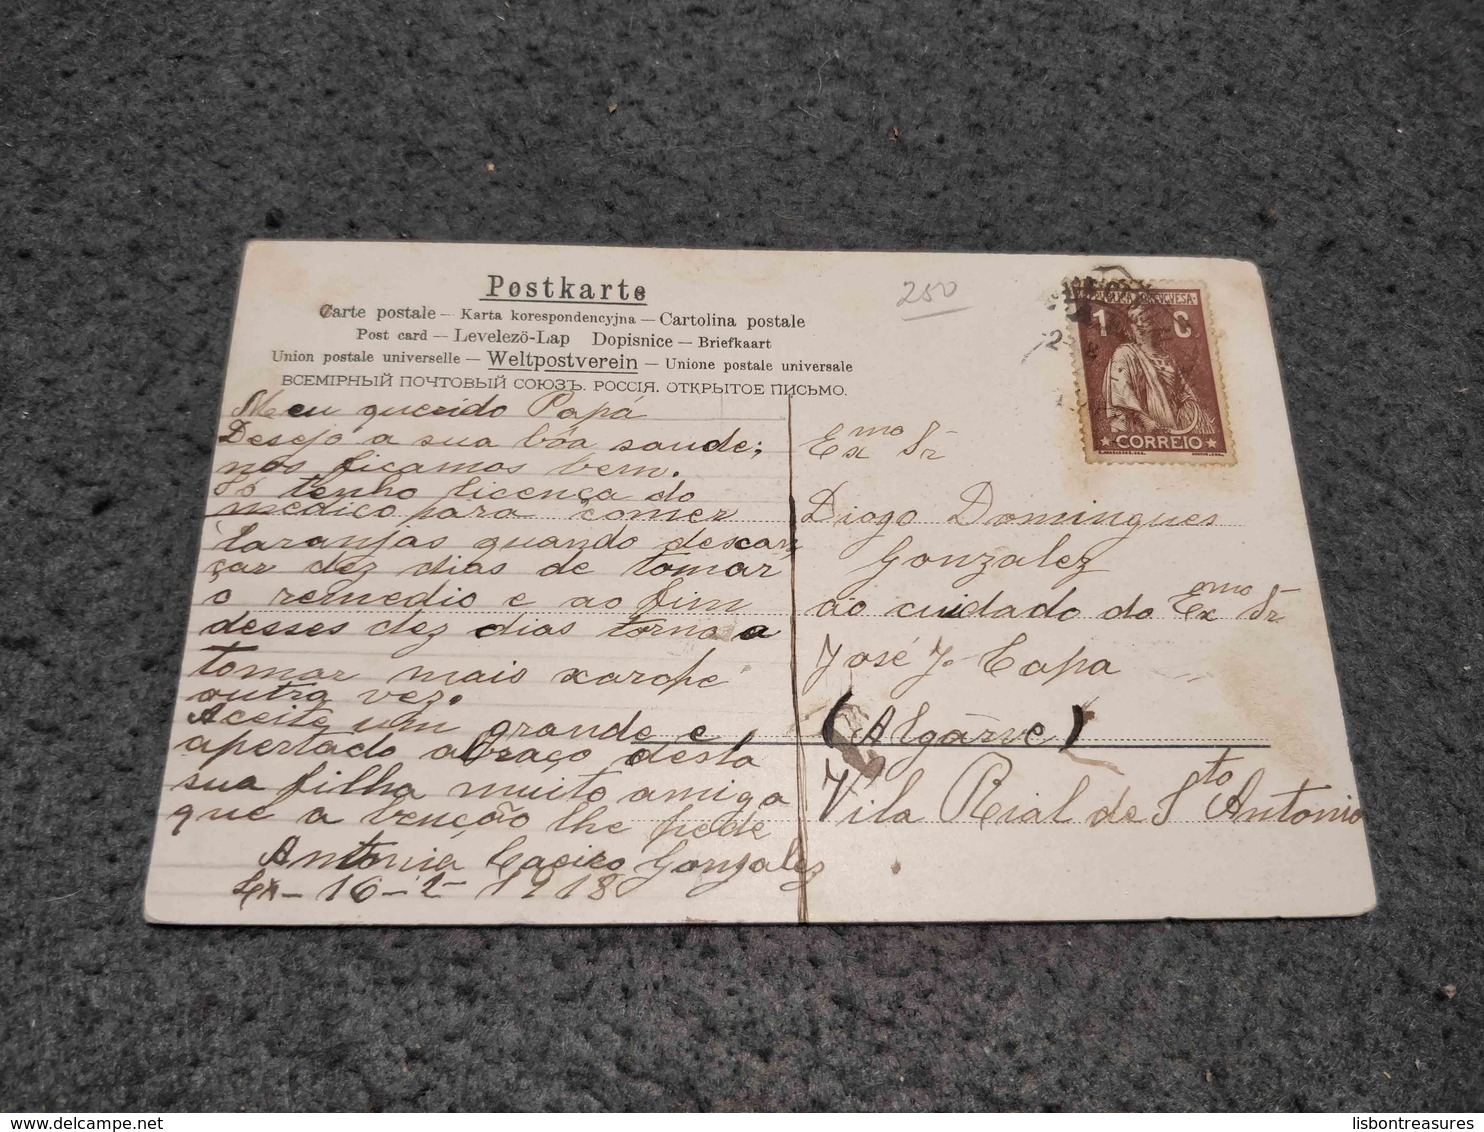 Postkarte
Carte postale — Karta korespondencyjna — Cartolina postale
Post card — Levelezö-Lap Dopisnice — Briefkaart
Union postale universelle — Weltpostverein — Unione postale universale
ВСЕМІРНЫЙ ПОЧТОВЫЙ СОЮЗЪ. РОССІЯ. ОТКРЫТОЕ ПИСЬМО.
250
1 C
CORREIO
Meu querido Papá
Desejo a sua bôa saude;
nós ficamos bem.
Só tenho licença do
medico para comer
laranjas quando descan
çar dez dias de tomar
o remedio e ao fim
desses dez dias torno a
tomar mais xarope
outra vez.
Aceite um grande e
apertado abraço desta
sua filha muito amiga
que a benção lhe pede
Antonia Gonzalez
16-2-1918
Exmo Sr
Diogo Domingues
Gonzalez
ao cuidado do Exmo Sr
José J. Capa
(Algarve)
Vila Rial de Sto Antonio
lisbontreasures.com